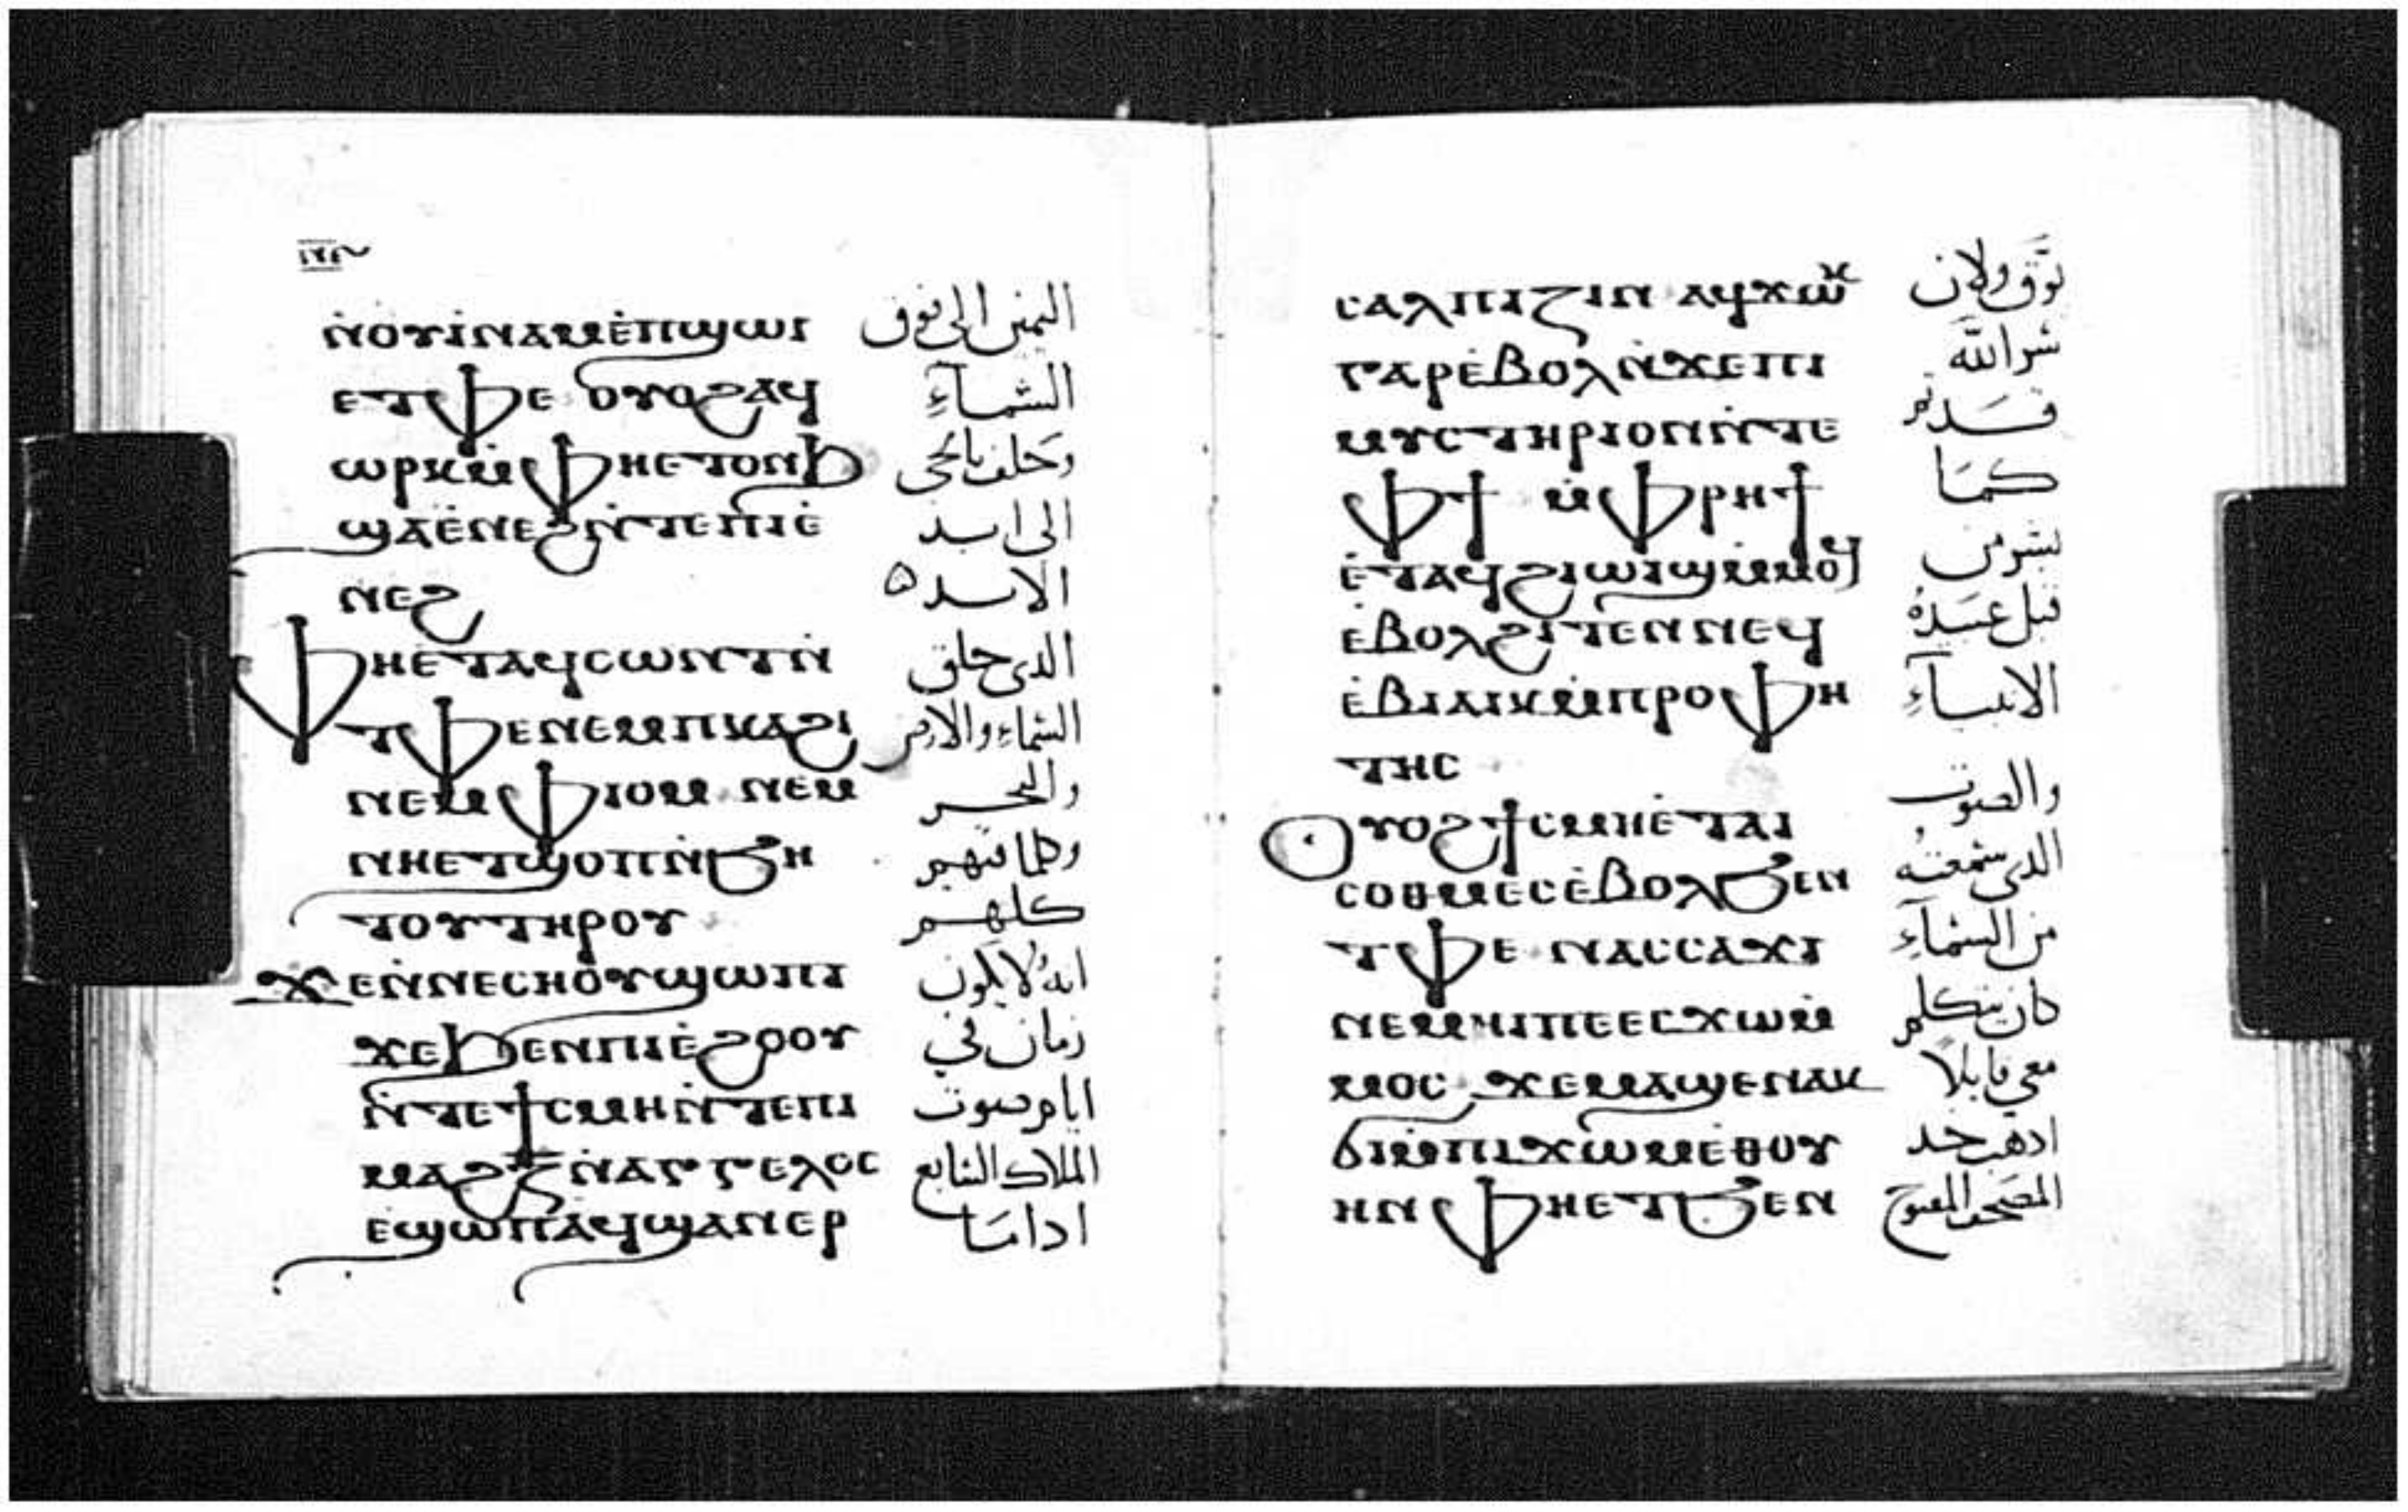 ⲛ̀ⲟⲩⲓ̀ⲛⲁⲙⲉ̀ⲡϣⲱⲓ اليمنى الى فوق
ⲉⲧⲫⲉ ⲟⲩⲟϩⲁϥ السماء
ⲱⲣⲕⲙ̀ⲫⲏⲉⲧⲟⲛϧ وحلف بالحى
ϣⲁⲉ̀ⲛⲉϩⲛ̀ⲧⲉⲡⲓⲉ̀ الى ابد
ⲛⲉϩ الابد
ⲫⲏⲉ̀ⲧⲁϥⲥⲱⲛⲧⲛ̀ الدى خلق
ⲧⲫⲉⲛⲉⲙⲡⲕⲁϩⲓ السماء والارض
ⲛⲉⲙⲫⲓⲟⲙ ⲛⲉⲙ والبحر
ⲛⲏⲉⲧϣⲟⲡⲛ̀ϧⲏ وكلما فيهم
ⲧⲟⲩⲧⲏⲣⲟⲩ كلهم
ϫⲉⲛ̀ⲛⲉⲥⲛⲟⲩϣⲱⲡⲓ انه لا يكون
ϫⲉϧⲉⲛⲡⲓⲉ̀ϩⲟⲟⲩ زمان في
ⲛ̀ⲧⲉϯⲥⲙⲏⲛ̀ⲧⲉⲡⲓ ايام صوت
ⲙⲁϩⲍ̄ⲛ̀ⲁⲅⲅⲉⲗⲟⲥ الملاك السابع
ⲉϣⲱⲡⲁϥϣⲁⲛⲉⲣ ادا ما
ⲥⲁⲗⲡⲓⲍⲓⲛ ⲁϥϫⲱⲕ بوق ولان
ⲅⲁⲣⲉ̀ⲃⲟⲗⲛ̀ϫⲉⲡⲓ سر الله
ⲙⲩⲥⲧⲏⲣⲓⲟⲛⲛ̀ⲧⲉ قد تم
ⲫϯ ⲙ̀ⲫⲣⲏϯ كما
ⲉ̀ⲧⲁϥϩⲓⲱⲓϣⲙ̀ⲙⲟϥ بشر من
ⲉ̀ⲃⲟⲗϩⲓⲧⲉⲛⲛⲉϥ قبل عبيده
ⲉ̀ⲃⲓⲁⲓⲕⲙ̀ⲡⲣⲟⲫⲏ الانبياء
ⲧⲏⲥ
ⲟⲩⲟϩϯⲥⲙⲏⲉ̀ⲧⲁⲓ والصوت
ⲥⲟⲑⲙⲉⲥⲉ̀ⲃⲟⲗϧⲉⲛ الدى سمعته
ⲧⲫⲉ ⲛⲁⲥⲥⲁϫⲓ من السماء
ⲛⲉⲙⲏⲓⲡⲉⲉⲥϫⲱⲙ̀ كان يتكلم
ⲙⲟⲥ ϫⲉⲙⲁϣⲉⲛⲁⲕ معي قايلا
ϭⲓⲙ̀ⲡⲓϫⲱⲙⲉ̀ⲑⲟⲩ ادهب خد
ⲏⲛ ⲫⲏⲉⲧϧⲉⲛ المصحف المفتوح